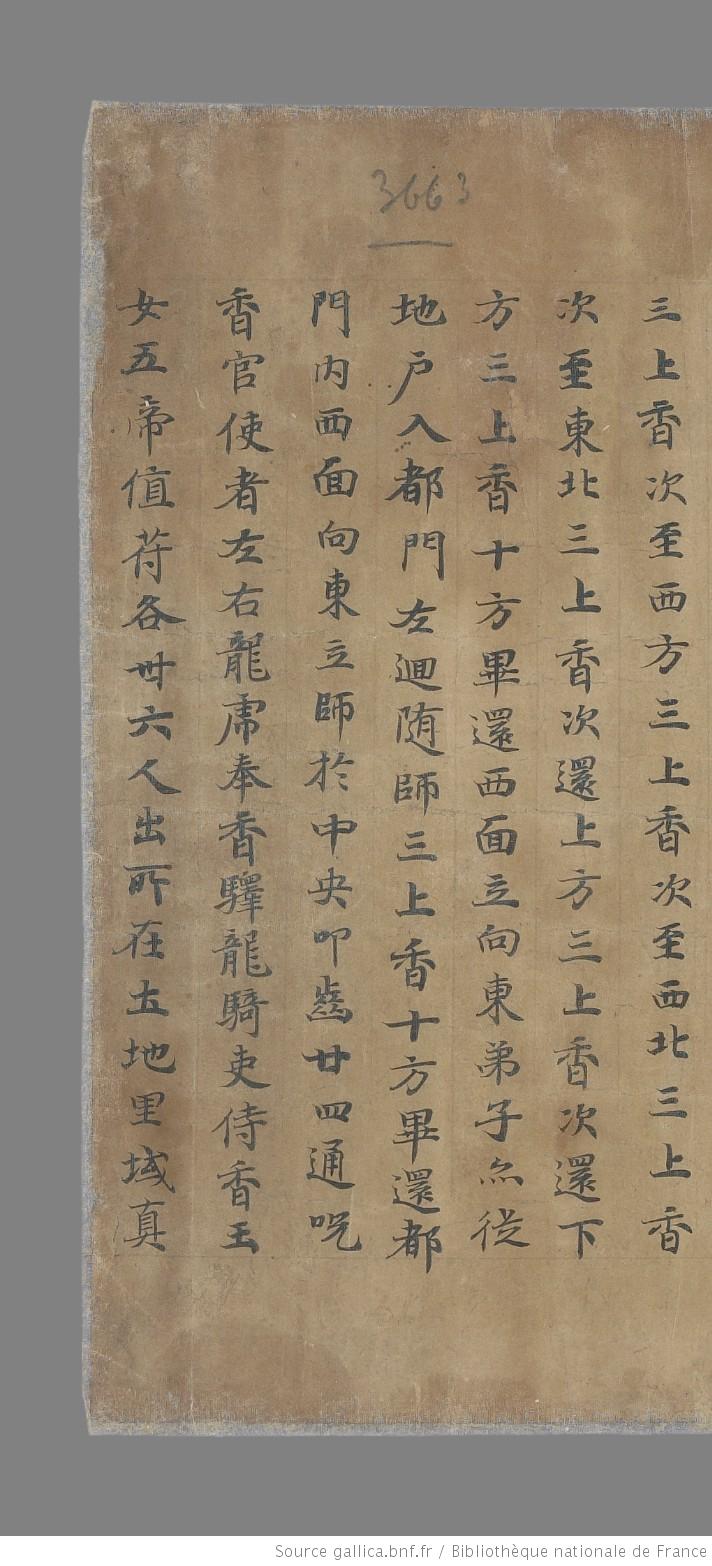 3663
三上香次至西方三上香次至西北三上香
次至東北三上香次還上方三上香次還下
方三上香十方畢還西面立向東弟子亦從
地户入都門左迴随師三上香十方畢還都
門内西面向東立師於中央叩齒廿四通呪
香官使者左右龍虎奉香驛龍騎吏侍香玉
女五帝值苻各卅六人出所在土地里域真
Source gallica.bnf.fr / Bibliothèque nationale de France